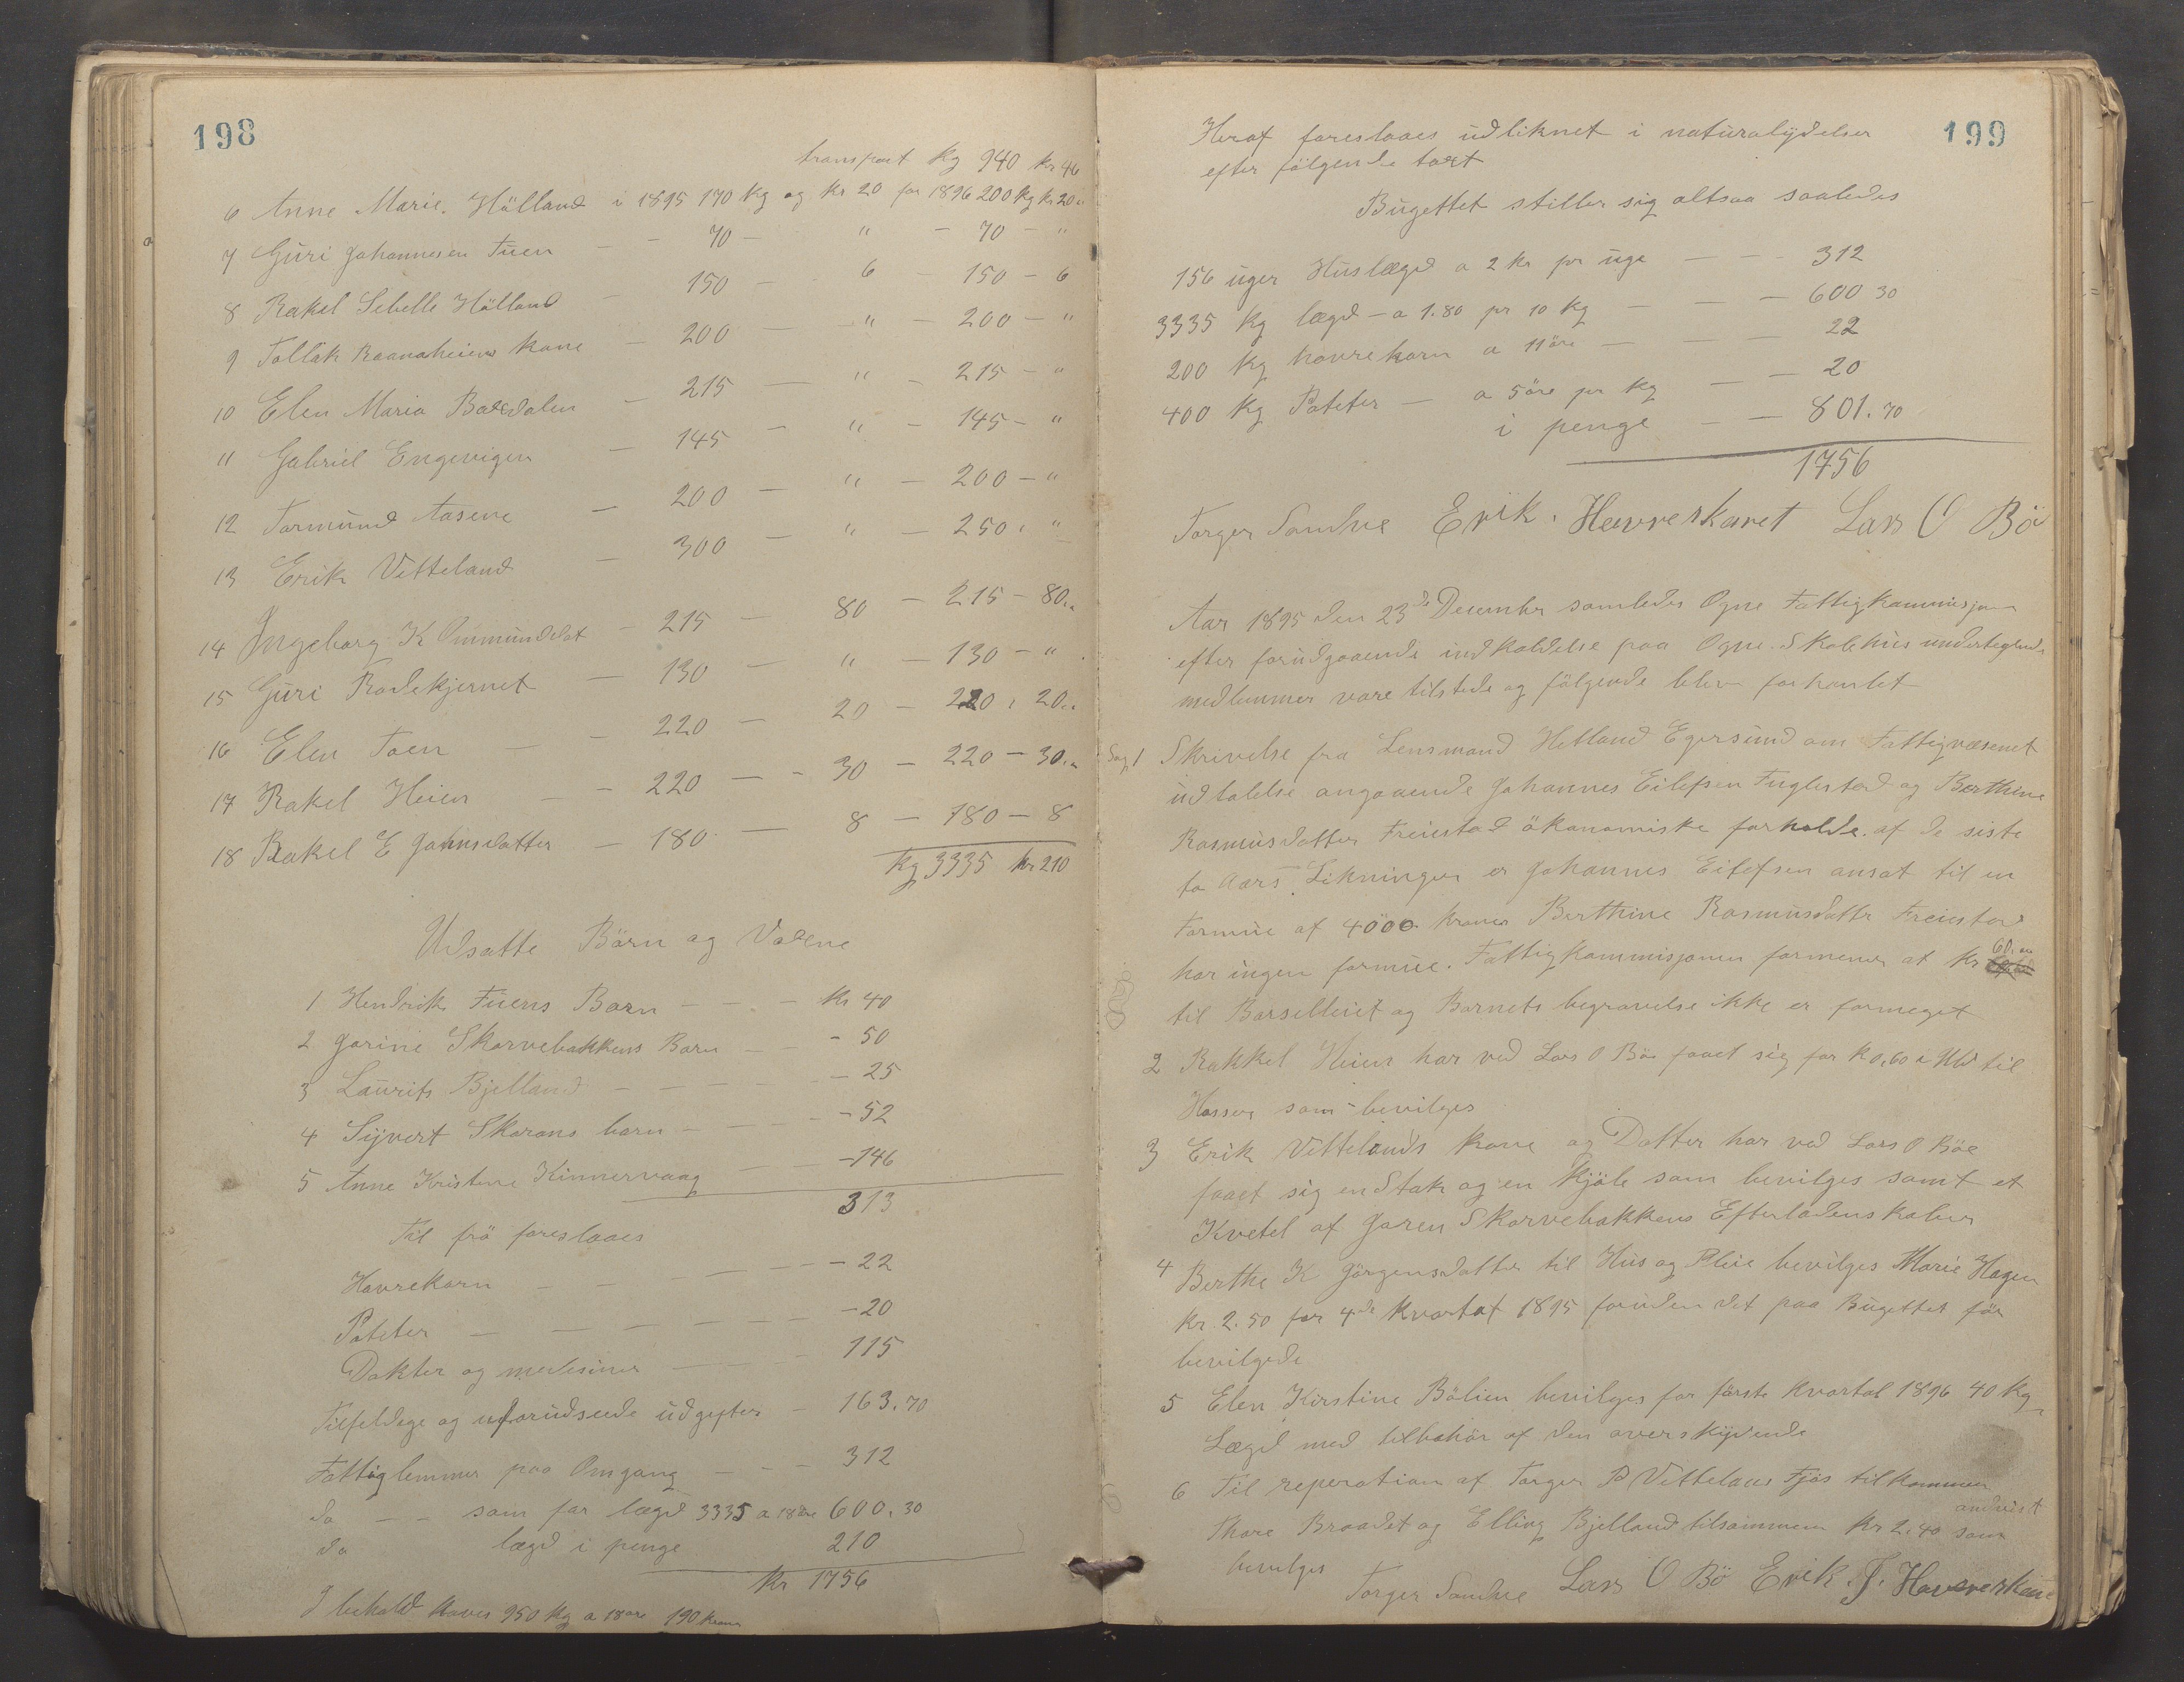 198
transport kg 940 kr 46
6 Anne Marie Hölland i 1895 170 kg og kr 20 for 1896 200 kg kr 20 "
7 Guri Johannesen Tuen — - 70 — " - 70 — "
8 Rakel Sebelle Hölland — 150 — 6 — 150 — 6
9 Tollak Raanaheiens kone — 200 — " — 200 — "
10 Elen Maria Bassdalen — 215 — " — 215 — "
11 Gabriel Engevigen — 145 — " — 145 — "
12 Tormund Aasene — 200 — " — 200 — "
13 Erik Vetteland — 300 — " — 250 , "
14 Ingeborg K Ommundsdat — 215 — 80 — 215 — 80."
15 Guri Rodekjernet — 130 — " — 130 — "
16 Elen Toen — — 220 — 20 — 220 , 20."
17 Rakel Heien — — 220 — - 30 — 220 — 30."
18 Rakel E Johnsdatter — 180 — 8 — 180 — 8
Kg 3335 kr 210
Udsatte Börn og Voxne
1 Hendrik Tuens Barn — - - kr 40
2 Jorine Skarvebakkens Barn — - - 50
3 Laurits Bjelland — — — - 25
4 Syvert Skarans barn — - - - 52
5 Anne Kristine Kinnervaag — — - 146
313
Til frö foreslaaes
Havrekorn — — — — - - 22
Poteter — — — — — - 20
Dokter og medesiner — — - 115
Tilfeldege og uforudseede udgifter — 163.70
Fattiglemmer paa Omgang — - - 312
do — - som faar lægd 3335 a 18 öre 600.30
do lægd i penge 210
Kr 1756
I behold haves 950 kg a 18 öre 190 kroner
199
Heraf foreslaaes udliknet i naturalydelser
efter fölgende taxt
Bugettet stiller sig altsaa saaledes
156 uger Huslægd a 2 kr pr uge — - - 312
3335 kg lægd - a 1.80 pr 10 kg — — — 600 30
200 kg havrekorn a 11 öre — — — 22
400 kg Poteter — a 5 öre pr kg — — 20
i penge — — 801.70
1756
Torger Sandve Erik. Havreskaret Lars O Bö
Aar 1895 den 23de December samledes Ogne Fattigkommisjon
efter forudgaaende indkaldelse paa Ogne Skolehus undertegnede
medlemmer vare tilstede og fölgende blev forhanlet
Sag 1 Skrivelse fra Lensmand Hetland Egersund om Fattigvæsenet
udtalelse angaaende Johannes Eilefsen Fuglestad og Berthine
Rasmusdatter Freiestad ökonomiske forholde. af de siste
to Aars Likninger er Johannes Eilefsen ansat til en
Formue af 4000 kroner Berthine Rasmusdatter Freiestad
har ingen formue. Fattigkommisjonen formener at kr 60.
til Barselleiet og Barnets begravelse ikke er formeget
2 Rakkel Heien har ved Lars O Böe faaet sig for k 0,60 i Uld til
Hosser som bevilges
3 Erik Vettelands kone og Datter har ved Lars O Böe
faaet sig en Stak og en kjöle som bevilges samt et
Kvetel af Joren Skarvebakkens Efterladenskaber
4 Berthe K Jörgensdatter til Hus og Pleie bevilges Marie Hagen
Kr 2.50 for 4de Kvartal 1895 foruden det paa Bugettet för
bevilgede
5 Elen Kirstine Bölien bevilges for förste Kvartal 1896 40 kg
Lægd med tilbehör af den overskydende
6 Til reperation af Torger P Vettelans Fjös tilkommer
Thore Braadet og Elling Bjelland tilsammem kr 2.40 som anvist
bevilges
Torger Sandve Lars O Bö Erik. J. Havreskaret